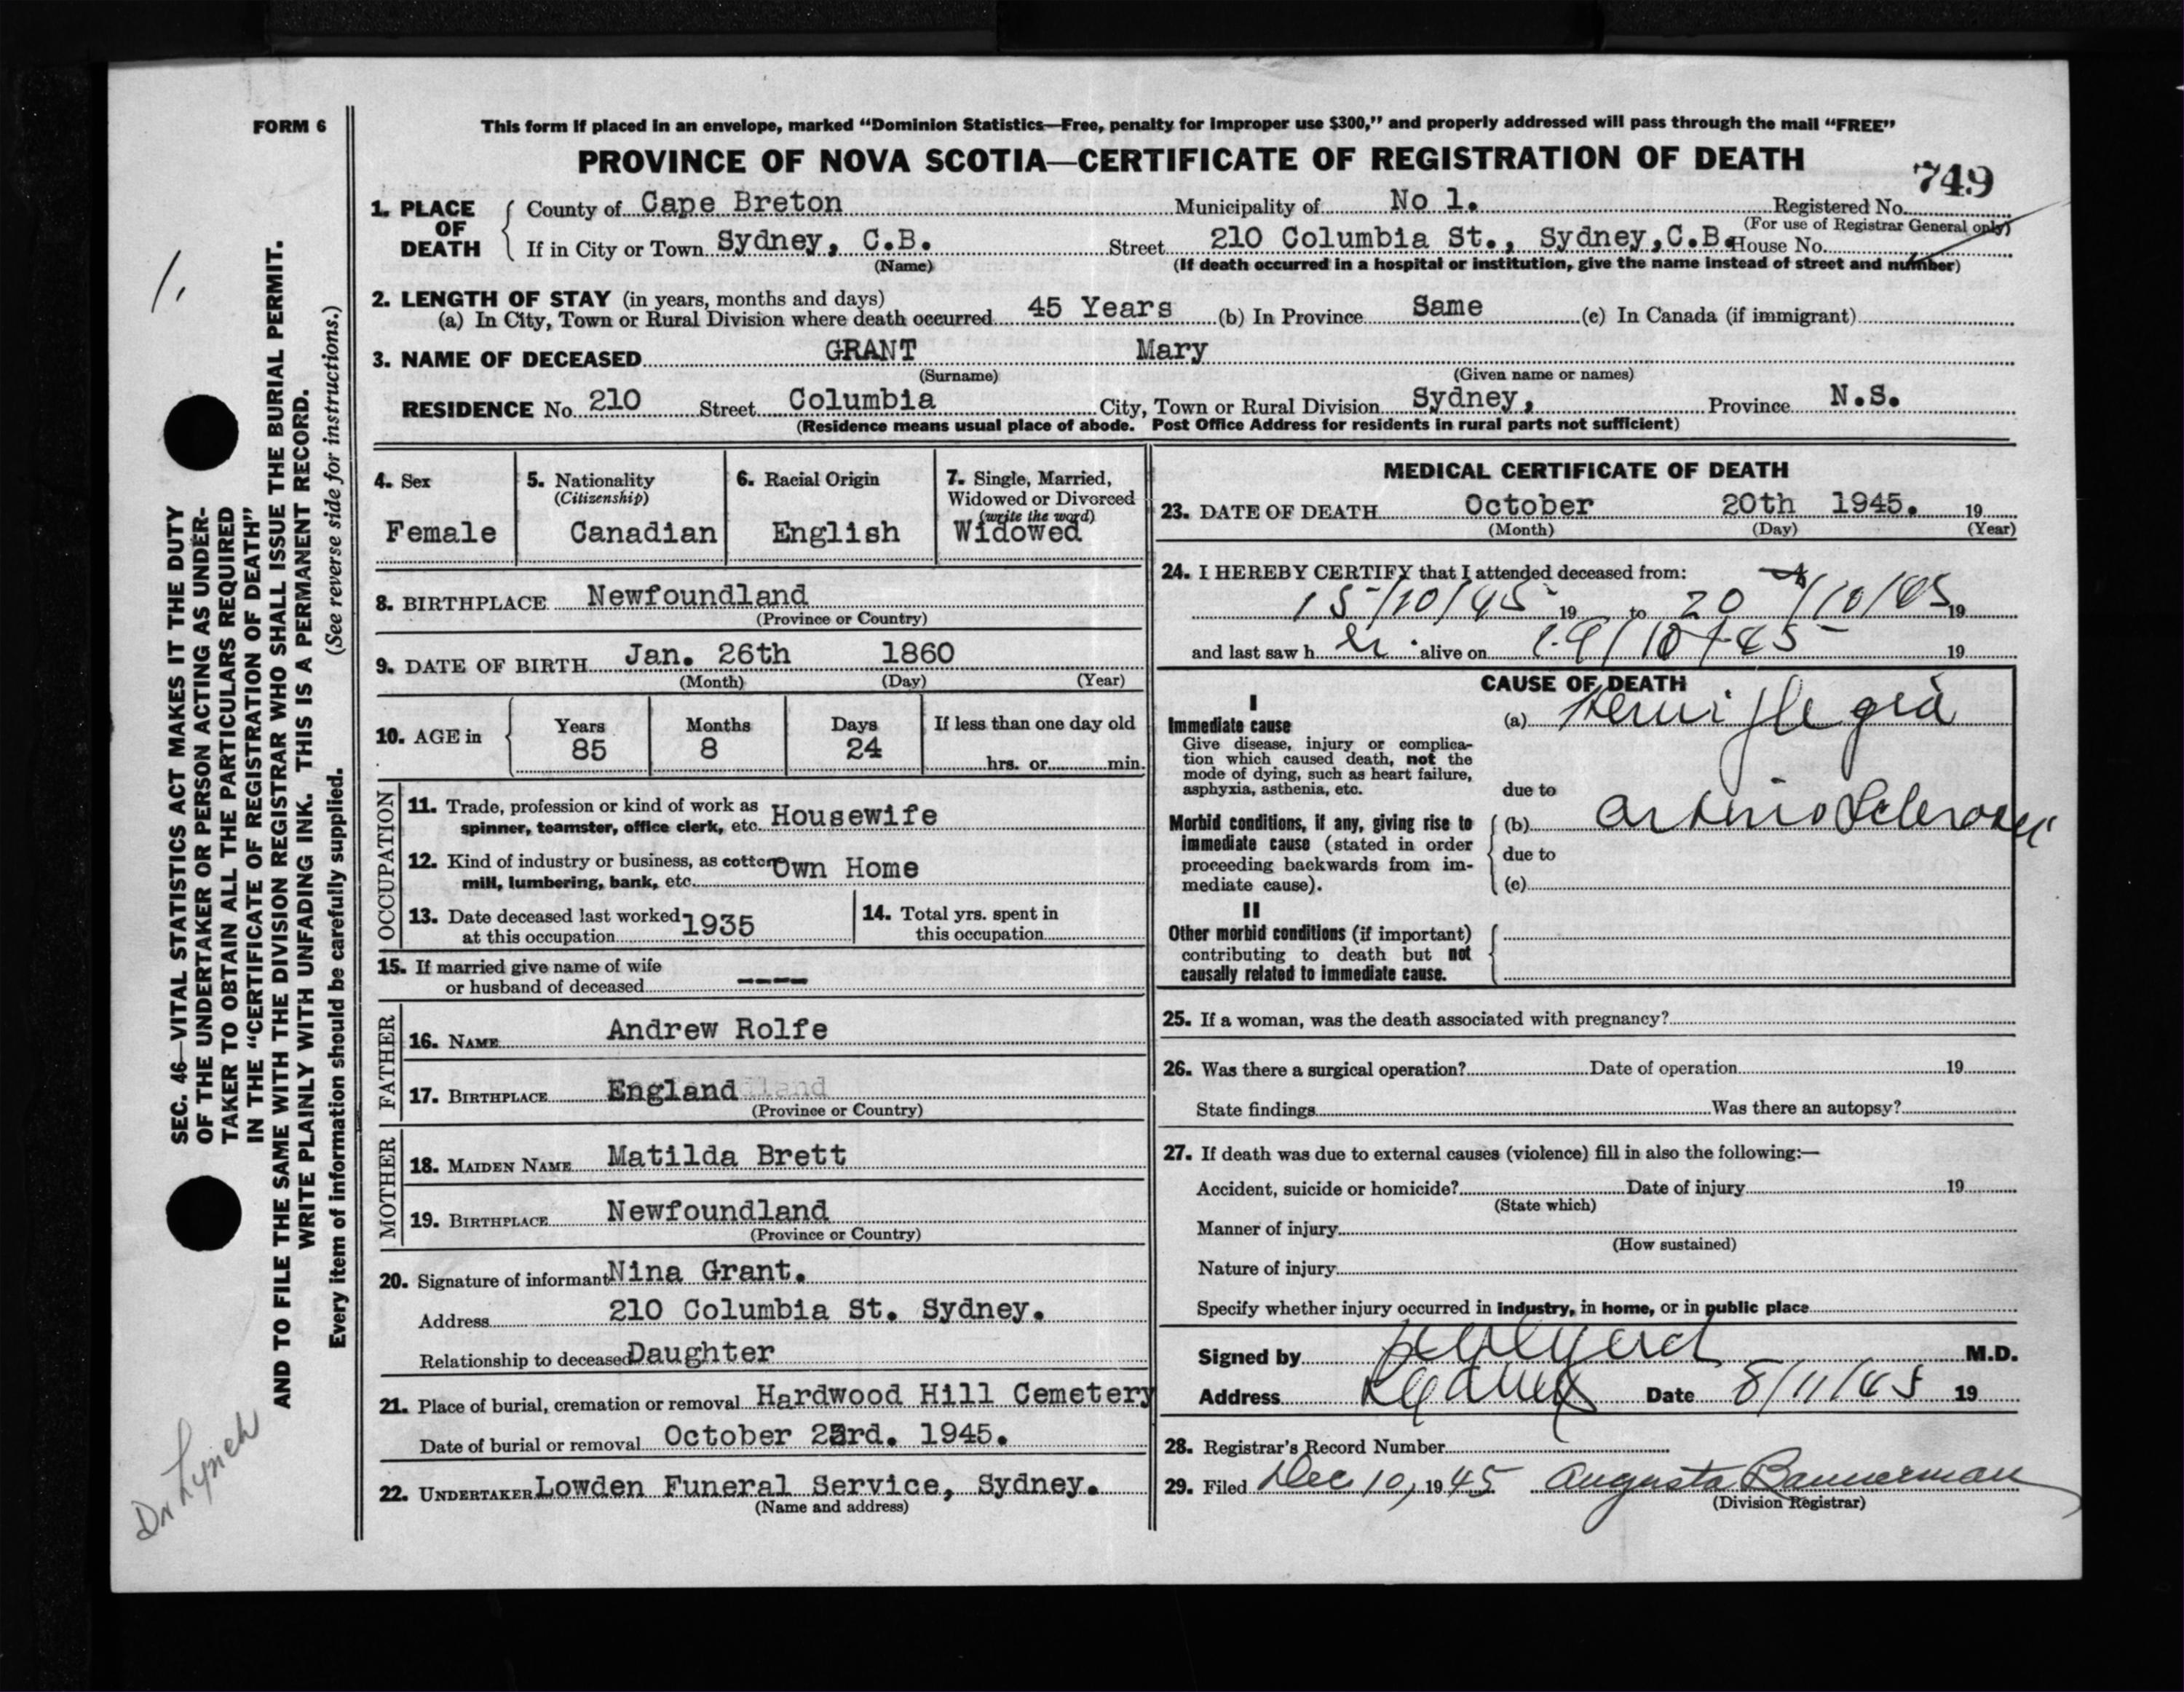 FORM 6
This form if placed in an envelope, marked “Dominion Statistics—Free, penalty for improper use $300,” and properly addressed will pass through the mail “FREE”
PROVINCE OF NOVA SCOTIA—CERTIFICATE OF REGISTRATION OF DEATH
749
1. PLACE OF DEATH
County of Cape Breton Municipality of No 1. Registered No.
(For use of Registrar General only)
If in City or Town Sydney, C.B. Street 210 Columbia St., Sydney,C.B. House No.
(Name) (If death occurred in a hospital or institution, give the name instead of street and number)
2. LENGTH OF STAY (in years, months and days)
(a) In City, Town or Rural Division where death occurred 45 Years (b) In Province Same (c) In Canada (if immigrant)
3. NAME OF DECEASED GRANT Mary
(Surname) (Given name or names)
RESIDENCE No. 210 Street Columbia City, Town or Rural Division Sydney, Province N.S.
(Residence means usual place of abode. Post Office Address for residents in rural parts not sufficient)
4. Sex
Female
5. Nationality
(Citizenship)
Canadian
6. Racial Origin
English
7. Single, Married,
Widowed or Divorced
(write the word)
Widowed
8. BIRTHPLACE Newfoundland
(Province or Country)
9. DATE OF BIRTH Jan. 26th 1860
(Month) (Day) (Year)
10. AGE in
Years Months Days If less than one day old
85 8 24
hrs. or min.
OCCUPATION
11. Trade, profession or kind of work as
spinner, teamster, office clerk, etc. Housewife
12. Kind of industry or business, as cotton
mill, lumbering, bank, etc. Own Home
13. Date deceased last worked
at this occupation 1935
14. Total yrs. spent in
this occupation
15. If married give name of wife
or husband of deceased ----
FATHER
16. NAME Andrew Rolfe
17. BIRTHPLACE England
(Province or Country)
MOTHER
18. MAIDEN NAME Matilda Brett
19. BIRTHPLACE Newfoundland
(Province or Country)
20. Signature of informant Nina Grant.
Address 210 Columbia St. Sydney.
Relationship to deceased Daughter
21. Place of burial, cremation or removal Hardwood Hill Cemetery
Date of burial or removal October 23rd. 1945.
22. UNDERTAKER Lowden Funeral Service, Sydney.
(Name and address)
MEDICAL CERTIFICATE OF DEATH
23. DATE OF DEATH October 20th 1945. 19
(Month) (Day) (Year)
24. I HEREBY CERTIFY that I attended deceased from:
15/10/45 19 to 20/10/45 19
and last saw h er alive on 19/10/45 19
CAUSE OF DEATH
I
Immediate cause (a) Hemiplegia
Give disease, injury or complica-
tion which caused death, not the
mode of dying, such as heart failure,
asphyxia, asthenia, etc.
due to
Morbid conditions, if any, giving rise to
immediate cause (stated in order
proceeding backwards from im-
mediate cause).
(b) arteriosclerosis
due to
(c)
II
Other morbid conditions (if important)
contributing to death but not
causally related to immediate cause.
25. If a woman, was the death associated with pregnancy?
26. Was there a surgical operation? Date of operation 19
State findings Was there an autopsy?
27. If death was due to external causes (violence) fill in also the following:—
Accident, suicide or homicide? Date of injury 19
(State which)
Manner of injury
(How sustained)
Nature of injury
Specify whether injury occurred in industry, in home, or in public place
Signed by M.D.
Address Sydney Date 8/11/45 19
28. Registrar's Record Number
29. Filed Dec 10, 1945 Augusta Bannerman
(Division Registrar)
SEC. 46—VITAL STATISTICS ACT MAKES IT THE DUTY
OF THE UNDERTAKER OR PERSON ACTING AS UNDER-
TAKER TO OBTAIN ALL THE PARTICULARS REQUIRED
IN THE “CERTIFICATE OF REGISTRATION OF DEATH”
AND TO FILE THE SAME WITH THE DIVISION REGISTRAR WHO SHALL ISSUE THE BURIAL PERMIT.
WRITE PLAINLY WITH UNFADING INK. THIS IS A PERMANENT RECORD.
Every item of information should be carefully supplied. (See reverse side for instructions.)
1.
Dr Lynch